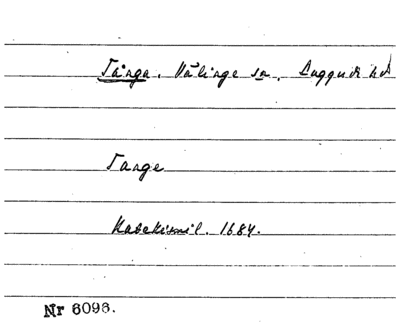 Tånga. Välinge sn. Luggude hd
Tange
Katekismil. 1684.
Nr 6096.